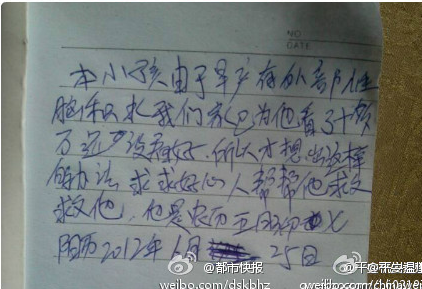 NO
DATE
本小孩由于早产存外部性
脑积水我们家已为他看了十几
万还是没看好.所以才想出这样
的办法 求求好心人帮帮他救
救他,他是农历五月初七
阳历2012年6月 25日
@都市快报
weibo.com/dskbhz